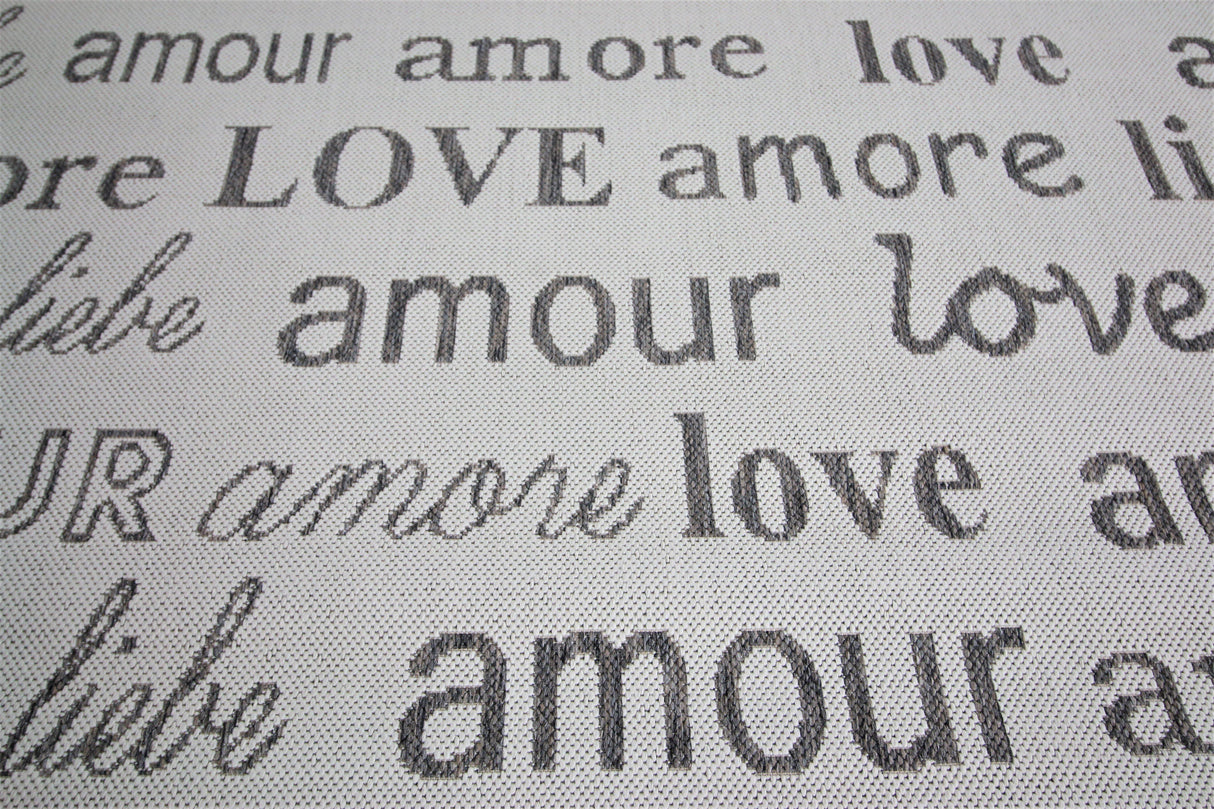 e amour amore love a
ore LOVE amore li
liebe amour love
UR amore love an
liebe amour a